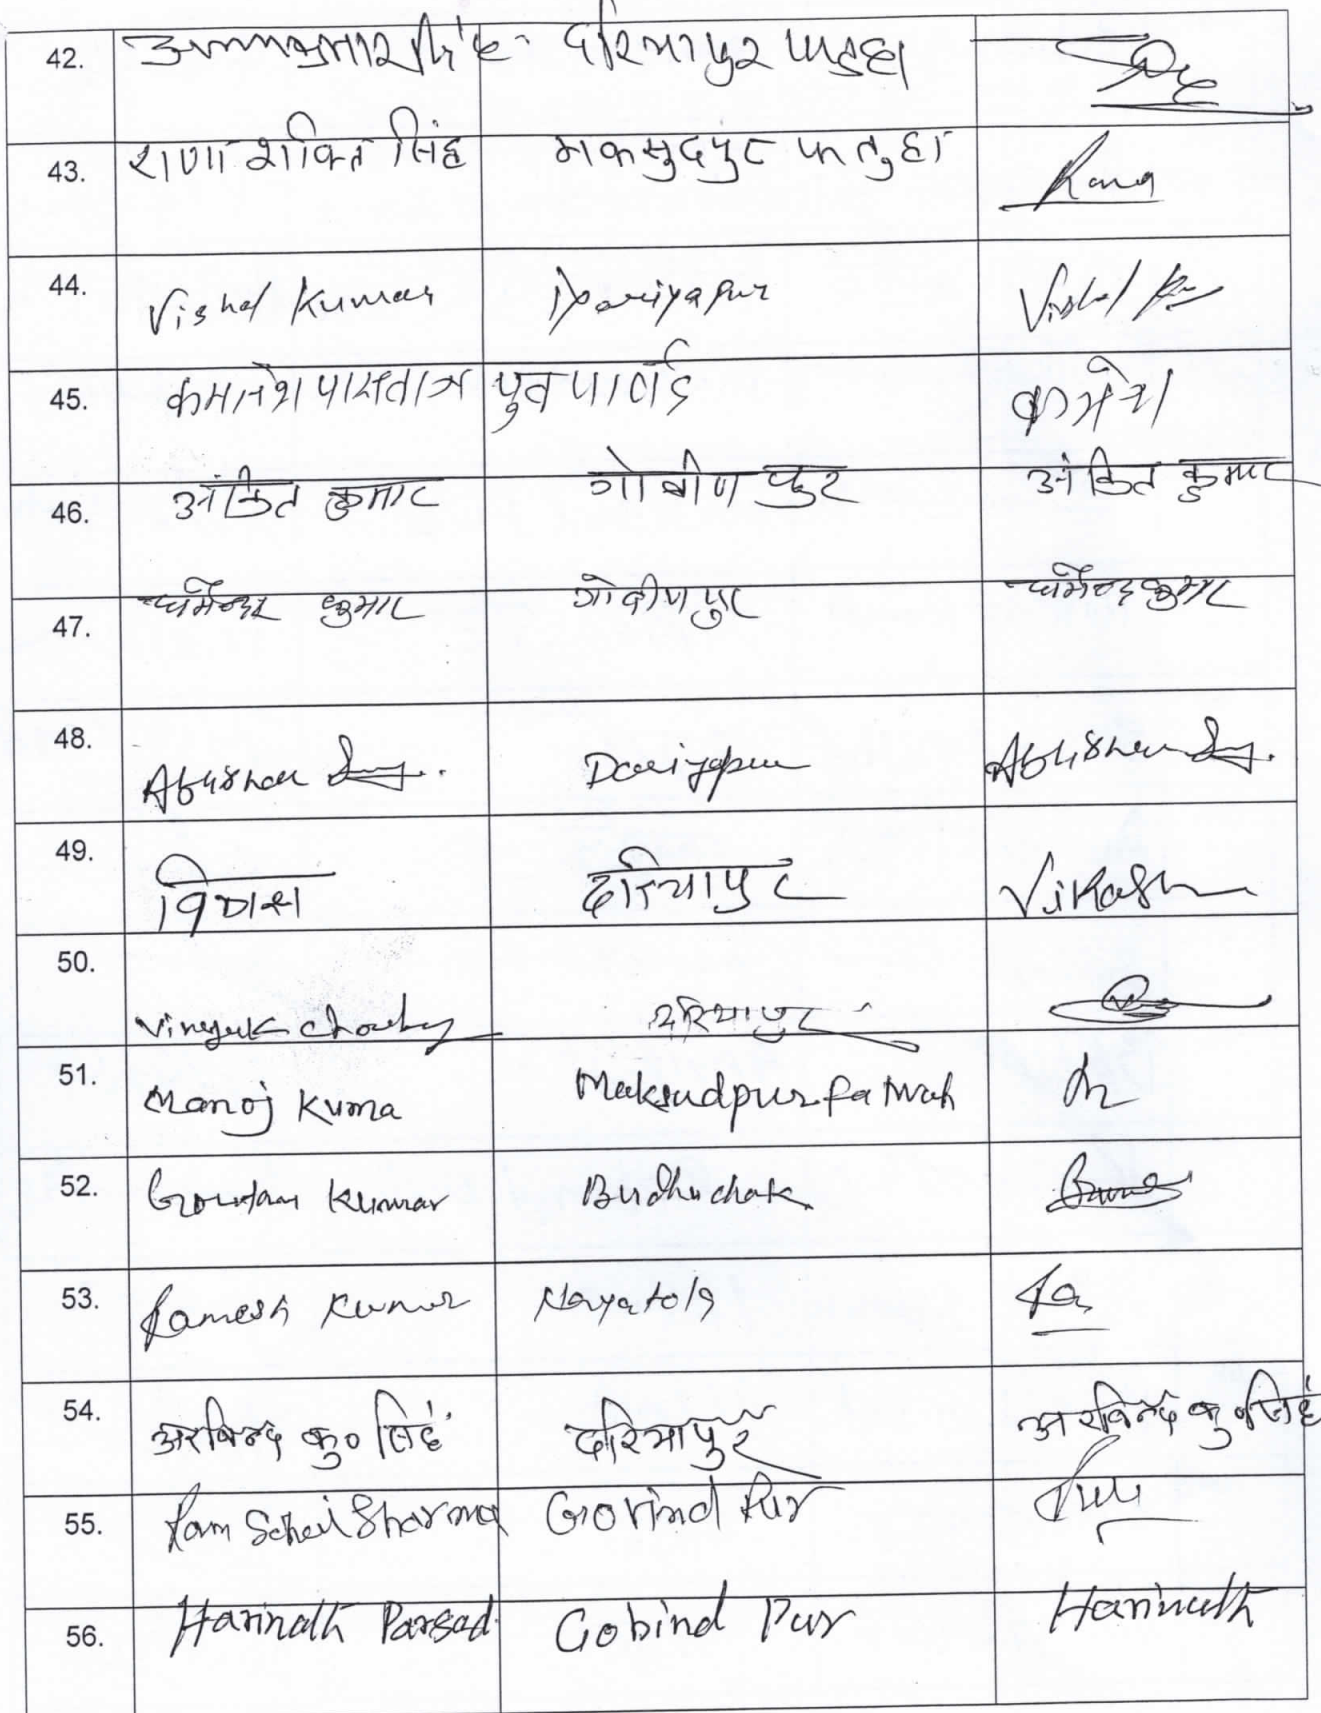 42. दरियापुर
43. राणा शक्ति सिंह मकसुदपुर फतुहा Rana
44. Vishal Kumar Dariyapur Vishal
45. कमलेश पासवान पुर्व पार्षद
46. अंकित कुमार गोबीण पुर अंकित कुमार
47. धर्मेन्द्र कुमार गोबीण पुर धर्मेन्द्र कुमार
48. Dariyapur
49. विकाश दरियापुर Vikash
50. दरियापुर
51. Manoj Kuma Maksudpur fatwah
52. Goutam Kumar Budhuchak
53. Ramesh Kumar Nayatola
54. अरविन्द कु० सिंह दरियापुर अरविन्द कु० सिंह
55. Ram Sharma Govind Pur
56. Harinath Parsad Gobind Pur Harinath